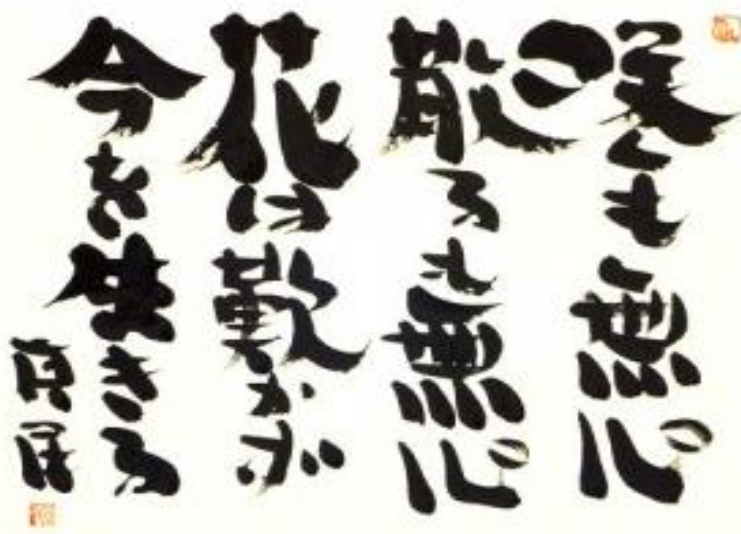 咲くも無心
散るも無心
花は歎かず
今を生きる
真民